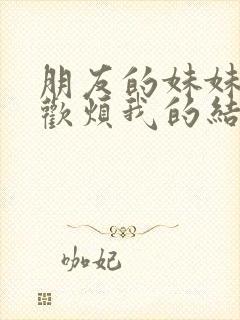 朋友的妹妹
歡煩我的結
咖妃